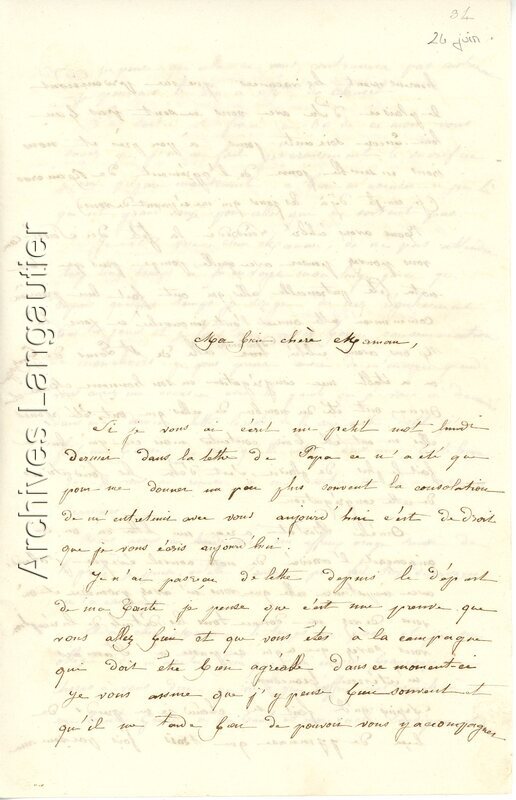 34
26 juin.
Ma bien chère Maman,
Si je vous ai écrit un petit mot lundi
dernier dans la lettre de Papa ce n'a été que
pour me donner un peu plus souvent la consolation
de m'entretenir avec vous aujourd'hui c'est de droit
que je vous écris aujourd'hui.
Je n'ai pas reçu de lettre depuis le départ
de ma tante je pense que c'est une preuve que
vous allez bien et que vous êtes à la campagne
qui doit être bien agréable dans ce moment ci
je vous assure que j'y pense bien souvent et
qu'il me tarde bien de pouvoir vous y accompagner
Archives Langautier